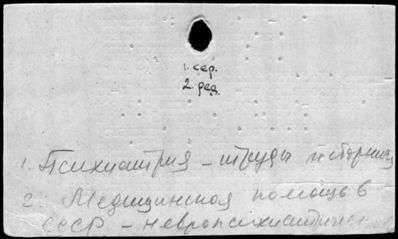 1. сер.
2. ред.
1. Психиатрия - труды и сборники
2. Медицинская помощь в
СССР - невропсихиатическ